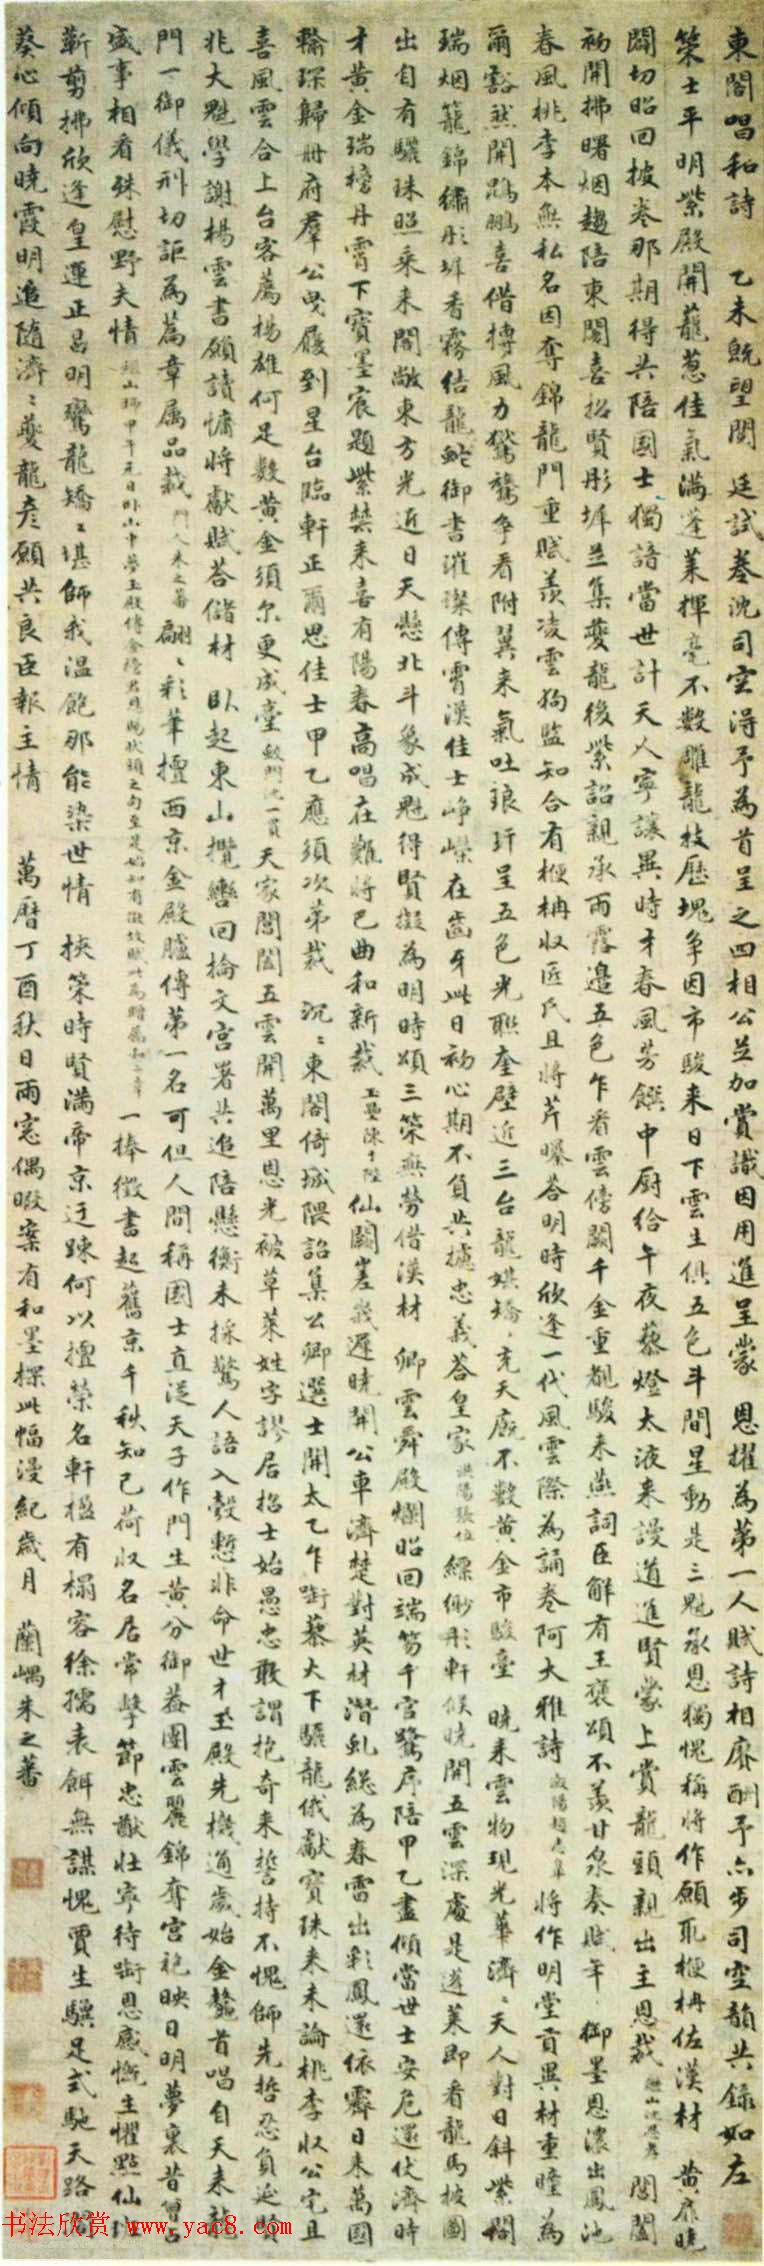 東閣唱和詩 乙未既望閱廷試卷沈司空得予為首呈之四相公並加賞識因用進呈蒙 恩擢為第一人賦詩相賡酬予亦步司空韻共錄如左
策士平明紫殿開蘢蔥佳氣滿蓬萊揮毫不數雕龍技歷塊爭因市駿來日下雲生俱五色斗間星動是三魁承恩獨愧稱將作願取楩柟佐漢材 黃扉曉
闢切昭回披卷那期得共陪國士獨語當世計天人寧讓異時才春風芳饌中廚給午夜藜燈太液來謾道進賢蒙上賞龍頭親出主恩裁 閶闔
初開拂曙烟趨陪東閣喜招賢彤墀並集夔龍後紫詔親承雨露邊五色乍看雲傍闕千金重覩駿來燕詞臣解有王褒頌不羨甘泉奏賦年 御墨恩濃出鳳池
春風桃李本無私名因奪錦龍門重賦羨凌雲狗監知合有楩柟收匠氏且將芹曝答明時欣逢一代風雲際為誦卷阿大雅詩 將作明堂貢異材重瞳為
爾豁然開鵾鵬喜借摶風力鸑鷟爭看附翼來氣吐琅玕呈五色光聯奎壁近三台龍媒矯矯充天廄不數黃金市駿臺 曉來雲物現光華濟濟天人對日斜紫閣
瑞烟籠錦繡彤墀香霧結龍蛇御書璀璨傳霄漢佳士崢嶸在齒牙此日初心期不負共攄忠義答皇家 洪陽張位 縹緲彤軒候曉開五雲深處是蓬萊即看龍馬披圖
出自有驪珠照乘來閣敞東方光近日天懸北斗象成魁得賢擬為明時頌三策無勞借漢材 卿雲舜殿爛昭回端笏千官鷺序陪甲乙盡傾當世士安危還仗濟時
才黃金瑞榜丹霄下寶墨宸題紫禁來喜有陽春高唱在難將巴曲和新裁 玉壘陳于陛 仙闕岧嶤遲曉開公車濟楚對英材潛虬總為春雷出彩鳳還依霽日來萬國
輸琛歸冊府群公曳履到星台臨軒正爾思佳士甲乙應須次第裁 沉沉東閣倚城隈詔集公卿選士開太乙乍銜藜火下驪龍俄獻寶珠來未論桃李收公宅且
喜風雲合上台客薦楊雄何足數黃金須尔更成臺 蛟門沈一貫 天家閶闔五雲開萬里恩光被草萊姓字謬居招士始愚忠敢謂抱奇來誓持不愧師先哲忍負延賢
兆大魁學謝楊雲書願讀慵將獻賦答儲材 臥起東山攬轡回掄文宮署共追陪懸衡未採驚人語入彀慙非命世才玉殿先機通歲始金鰲首唱自天來龍
門一御儀刑切詎為篇章属品裁 門人朱之蕃 翩翩彩筆擅西京金殿臚傳第一名可但人間稱國士直從天子作門生黃分御蓋團雲麗錦奪宮袍映日明夢裏昔曾占
盛事相看殊慰野夫情 一捧徵書起舊京千秋知己荷收名居常擊節忠猷壯寧待銜恩感慨生懼點仙班
靳剪拂欣逢皇運正昌明鸞龍矯矯堪師我溫飽那能染世情 挾策時賢滿帝京迂踈何以擅榮名軒楹有榻容徐孺表餌無謀愧賈生驥足式馳天路闊
葵心傾向曉霞明追隨濟濟夔龍彥願共良臣報主情 萬曆丁酉秋日雨窓偶暇案有和墨櫟此幅漫紀歲月 蘭嵎朱之蕃
书法欣赏 www.yac8.com